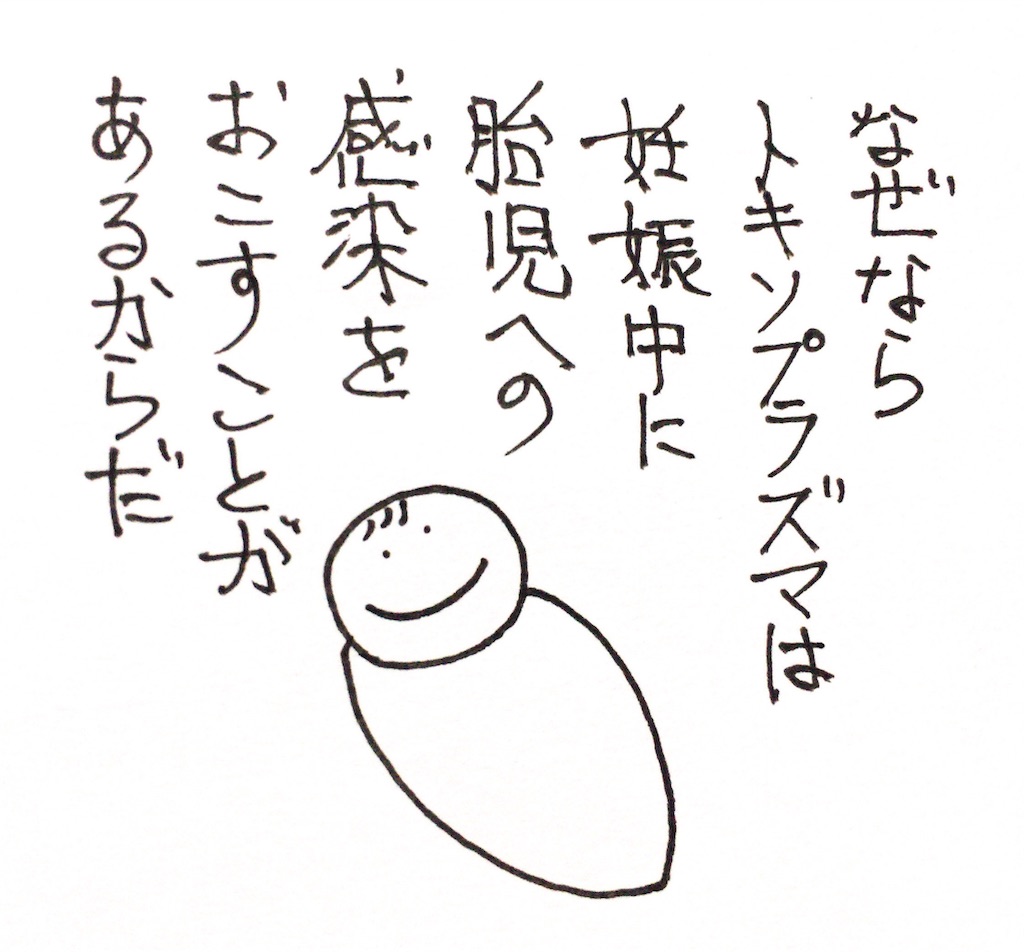 なぜなら
トキソプラズマは
妊娠中に
胎児への
感染を
おこすことが
あるからだ